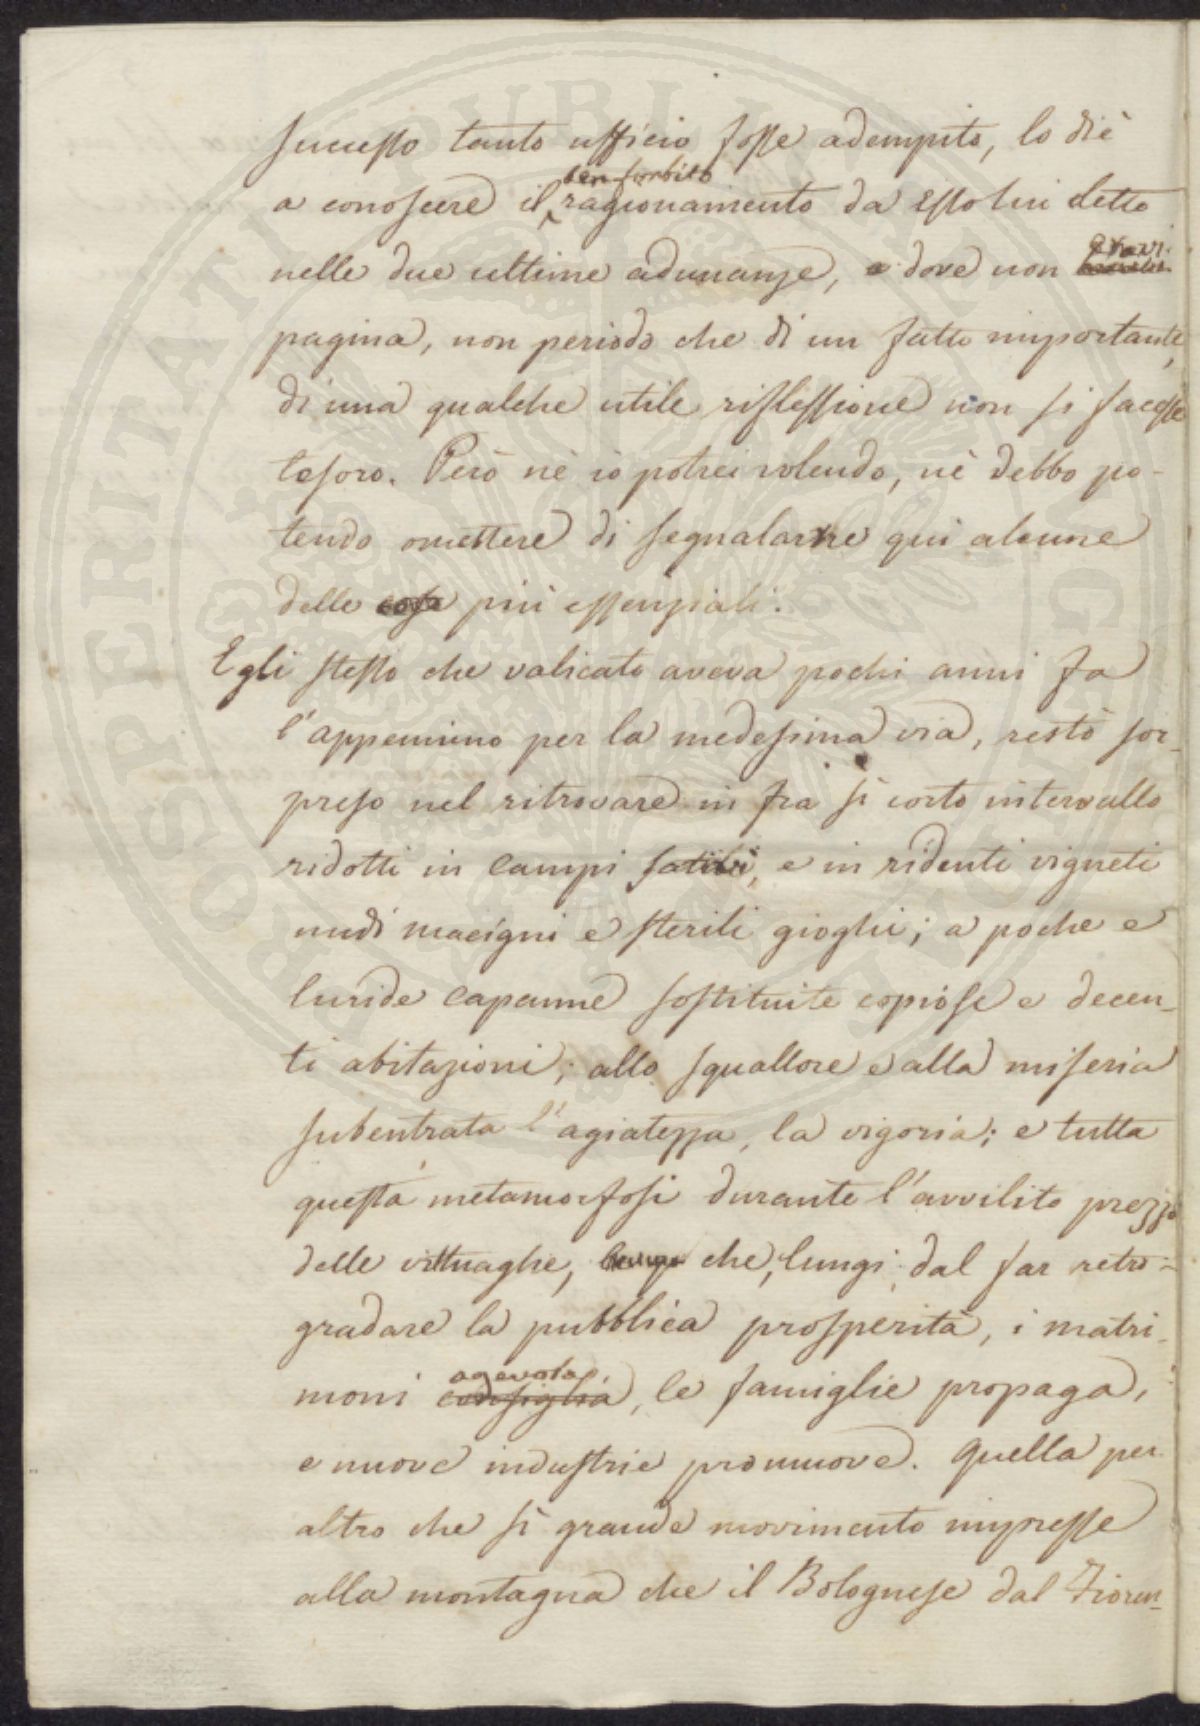 successo tanto ufficio fosse adempito, lo diè
ben forbito
a conoscere il ragionamento da Esso lui letto
nelle due ultime adunanze, e dove non
pagina, non periodo che di un fatto importante,
di una qualche utile riflessione non si facesse
tesoro. Però nè io potrei volendo, nè debbo po-
tendo omettere di segnalarne qui alcune
delle cose più essenziali.
Egli stesso che valicato aveva pochi anni fa
l'appennino per la medesima via, restò sor-
preso nel ritrovare in fra sì corto intervallo
ridotti in campi sativi, e in ridenti vigneti
nudi macigni e sterili gioghi; a poche e
luride capanne sostituite copiose e decen-
ti abitazioni; allo squallore e alla miseria
subentrata l'agiatezza, la vigoria; e tutta
questa metamorfosi durante l'avvilito prezzo
delle vittuaglie, che, lungi dal far retro-
gradare la pubblica prosperità, i matri-
agevola
moni consiglia, le famiglie propaga,
e nuove industrie promuove. Quella per
altro che sì grande movimento impresse
alla montagna che il Bolognese dal Fioren-
PROSPERITATI PUBLICAE AUGENDAE